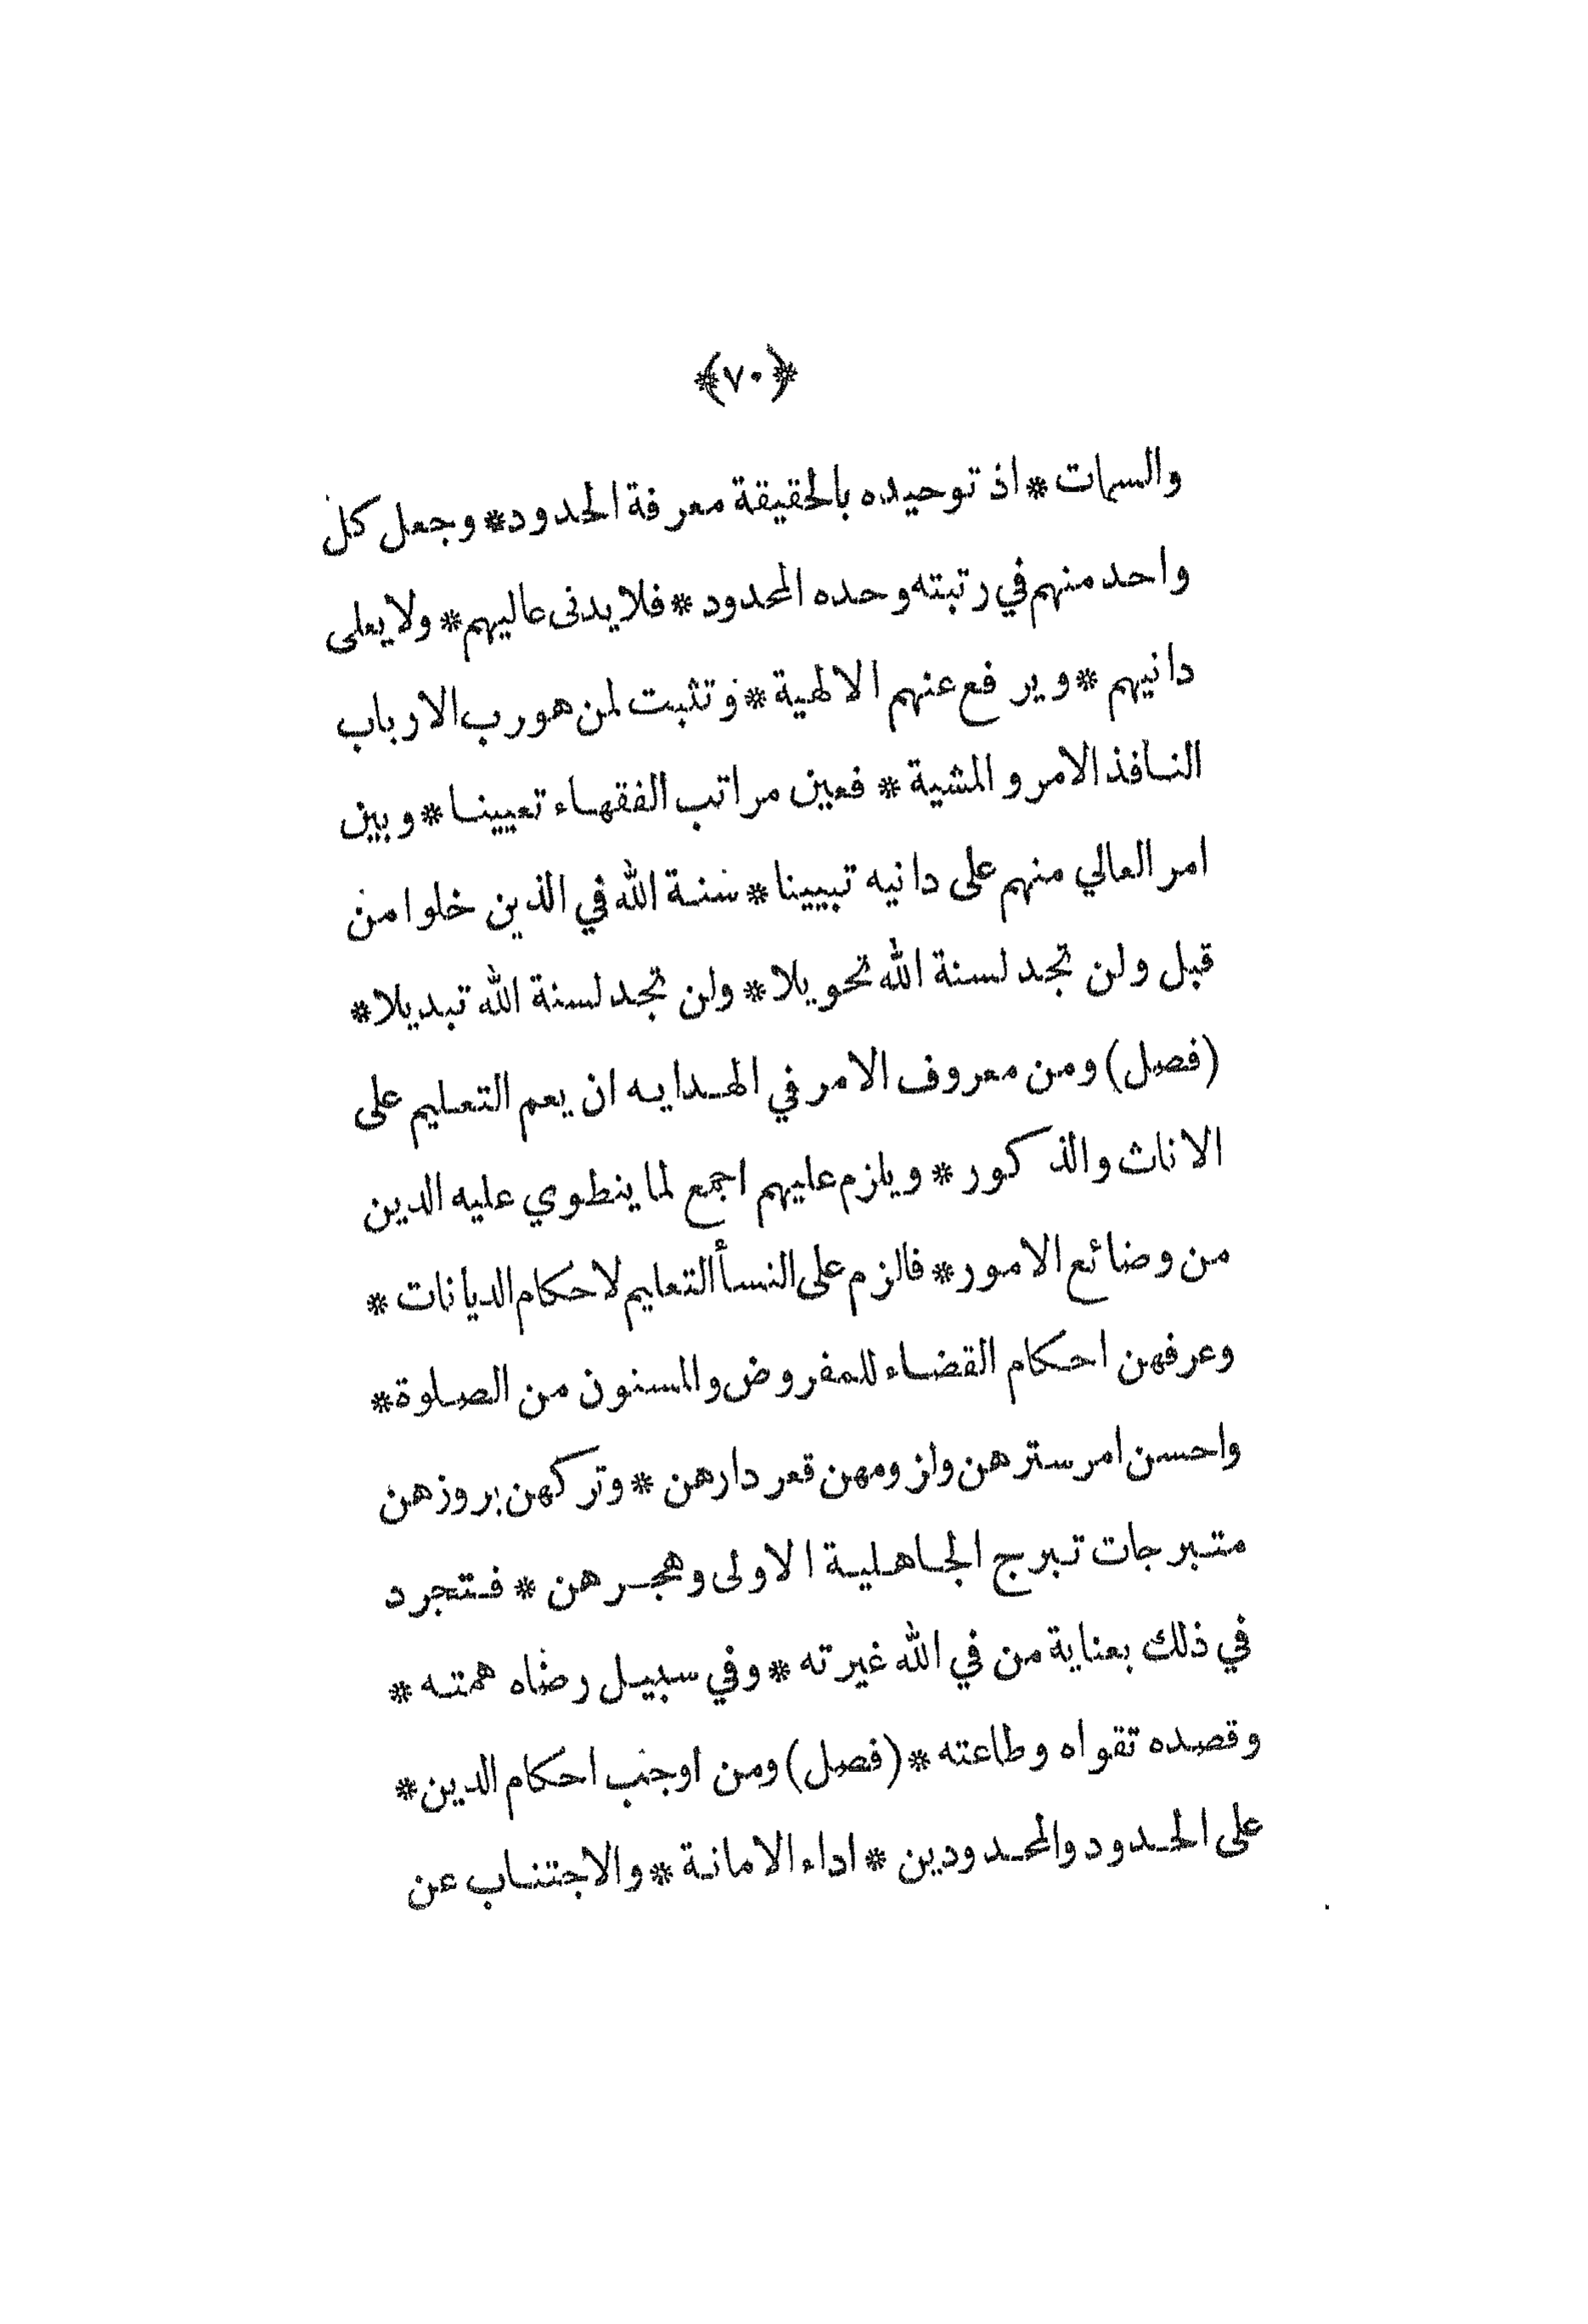 ﴿٧٠﴾
والسمات * اذ توحيده بالحقيقة معرفة الحدود * وجعل كل
واحد منهم في رتبته وحده المحدود * فلا يدنى عاليهم * ولا يعلى
دانيهم * ويرفع عنهم الالهية * وتثبت لمن هو رب الارباب
النافذ الامر والمشية * فعين مراتب الفقهاء تعيينا * وبين
امر العالي منهم على دانيه تبيينا * سنة الله في الذين خلوا من
قبل ولن تجد لسنة الله تحويلا * ولن تجد لسنة الله تبديلا *
(فصل) ومن معروف الامر في الهدايه ان يعم التعليم على
الاناث والذكور * ويلزم عليهم اجمع لما ينطوي عليه الدين
من وضائع الامور * فالزم على النسأ التعليم لاحكام الديانات *
وعرفهن احكام القضاء للمفروض والمسنون من الصلوة *
واحسن امر سترهن ولزومهن قعر دارهن * وتركهن بروزهن
متبرجات تبرج الجاهلية الاولى وهجرهن * فتجرد
في ذلك بعناية من في الله غيرته * وفي سبيل رضاه همته *
وقصده تقواه وطاعته * (فصل) ومن اوجب احكام الدين *
على الحدود والمحدودين * اداء الامانة * والاجتناب عن